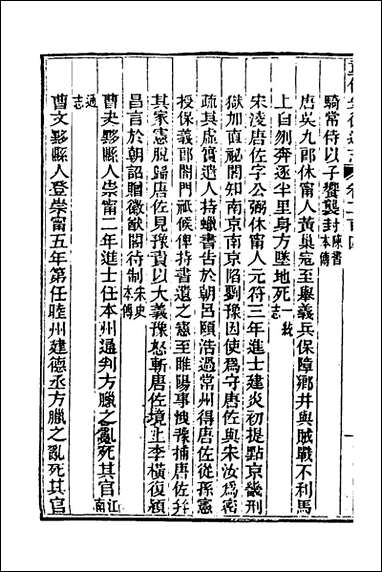 騎常侍以子饗襲封陳書本傳
唐吳九郎休甯人黃巢寇至舉義兵保障鄉井與賊戰不利馬
上自刎奔逐半里身方墜地死一統志
宋淩唐佐字公弼休甯人元符三年進士建炎初提點京畿刑
獄加直祕閣知南京南京陷劉豫因使為守唐佐與朱汝為密
疏其虛實遣人持蠟書告於朝呂頤浩過常州得唐佐從孫憲
授保義郎閤門祗候俾持書遺之憲至睢陽事洩豫捕唐佐幷
其家憲脫歸唐佐見豫責以大義豫怒斬唐佐境上李橫復潁
昌言於朝詔贈徽猷閣待制宋史本傳
曹史黟縣人崇甯二年進士任本州通判方臘之亂死其官江南
通志
曹文黟縣人登崇甯五年第任睦州建德丞方臘之亂死其官